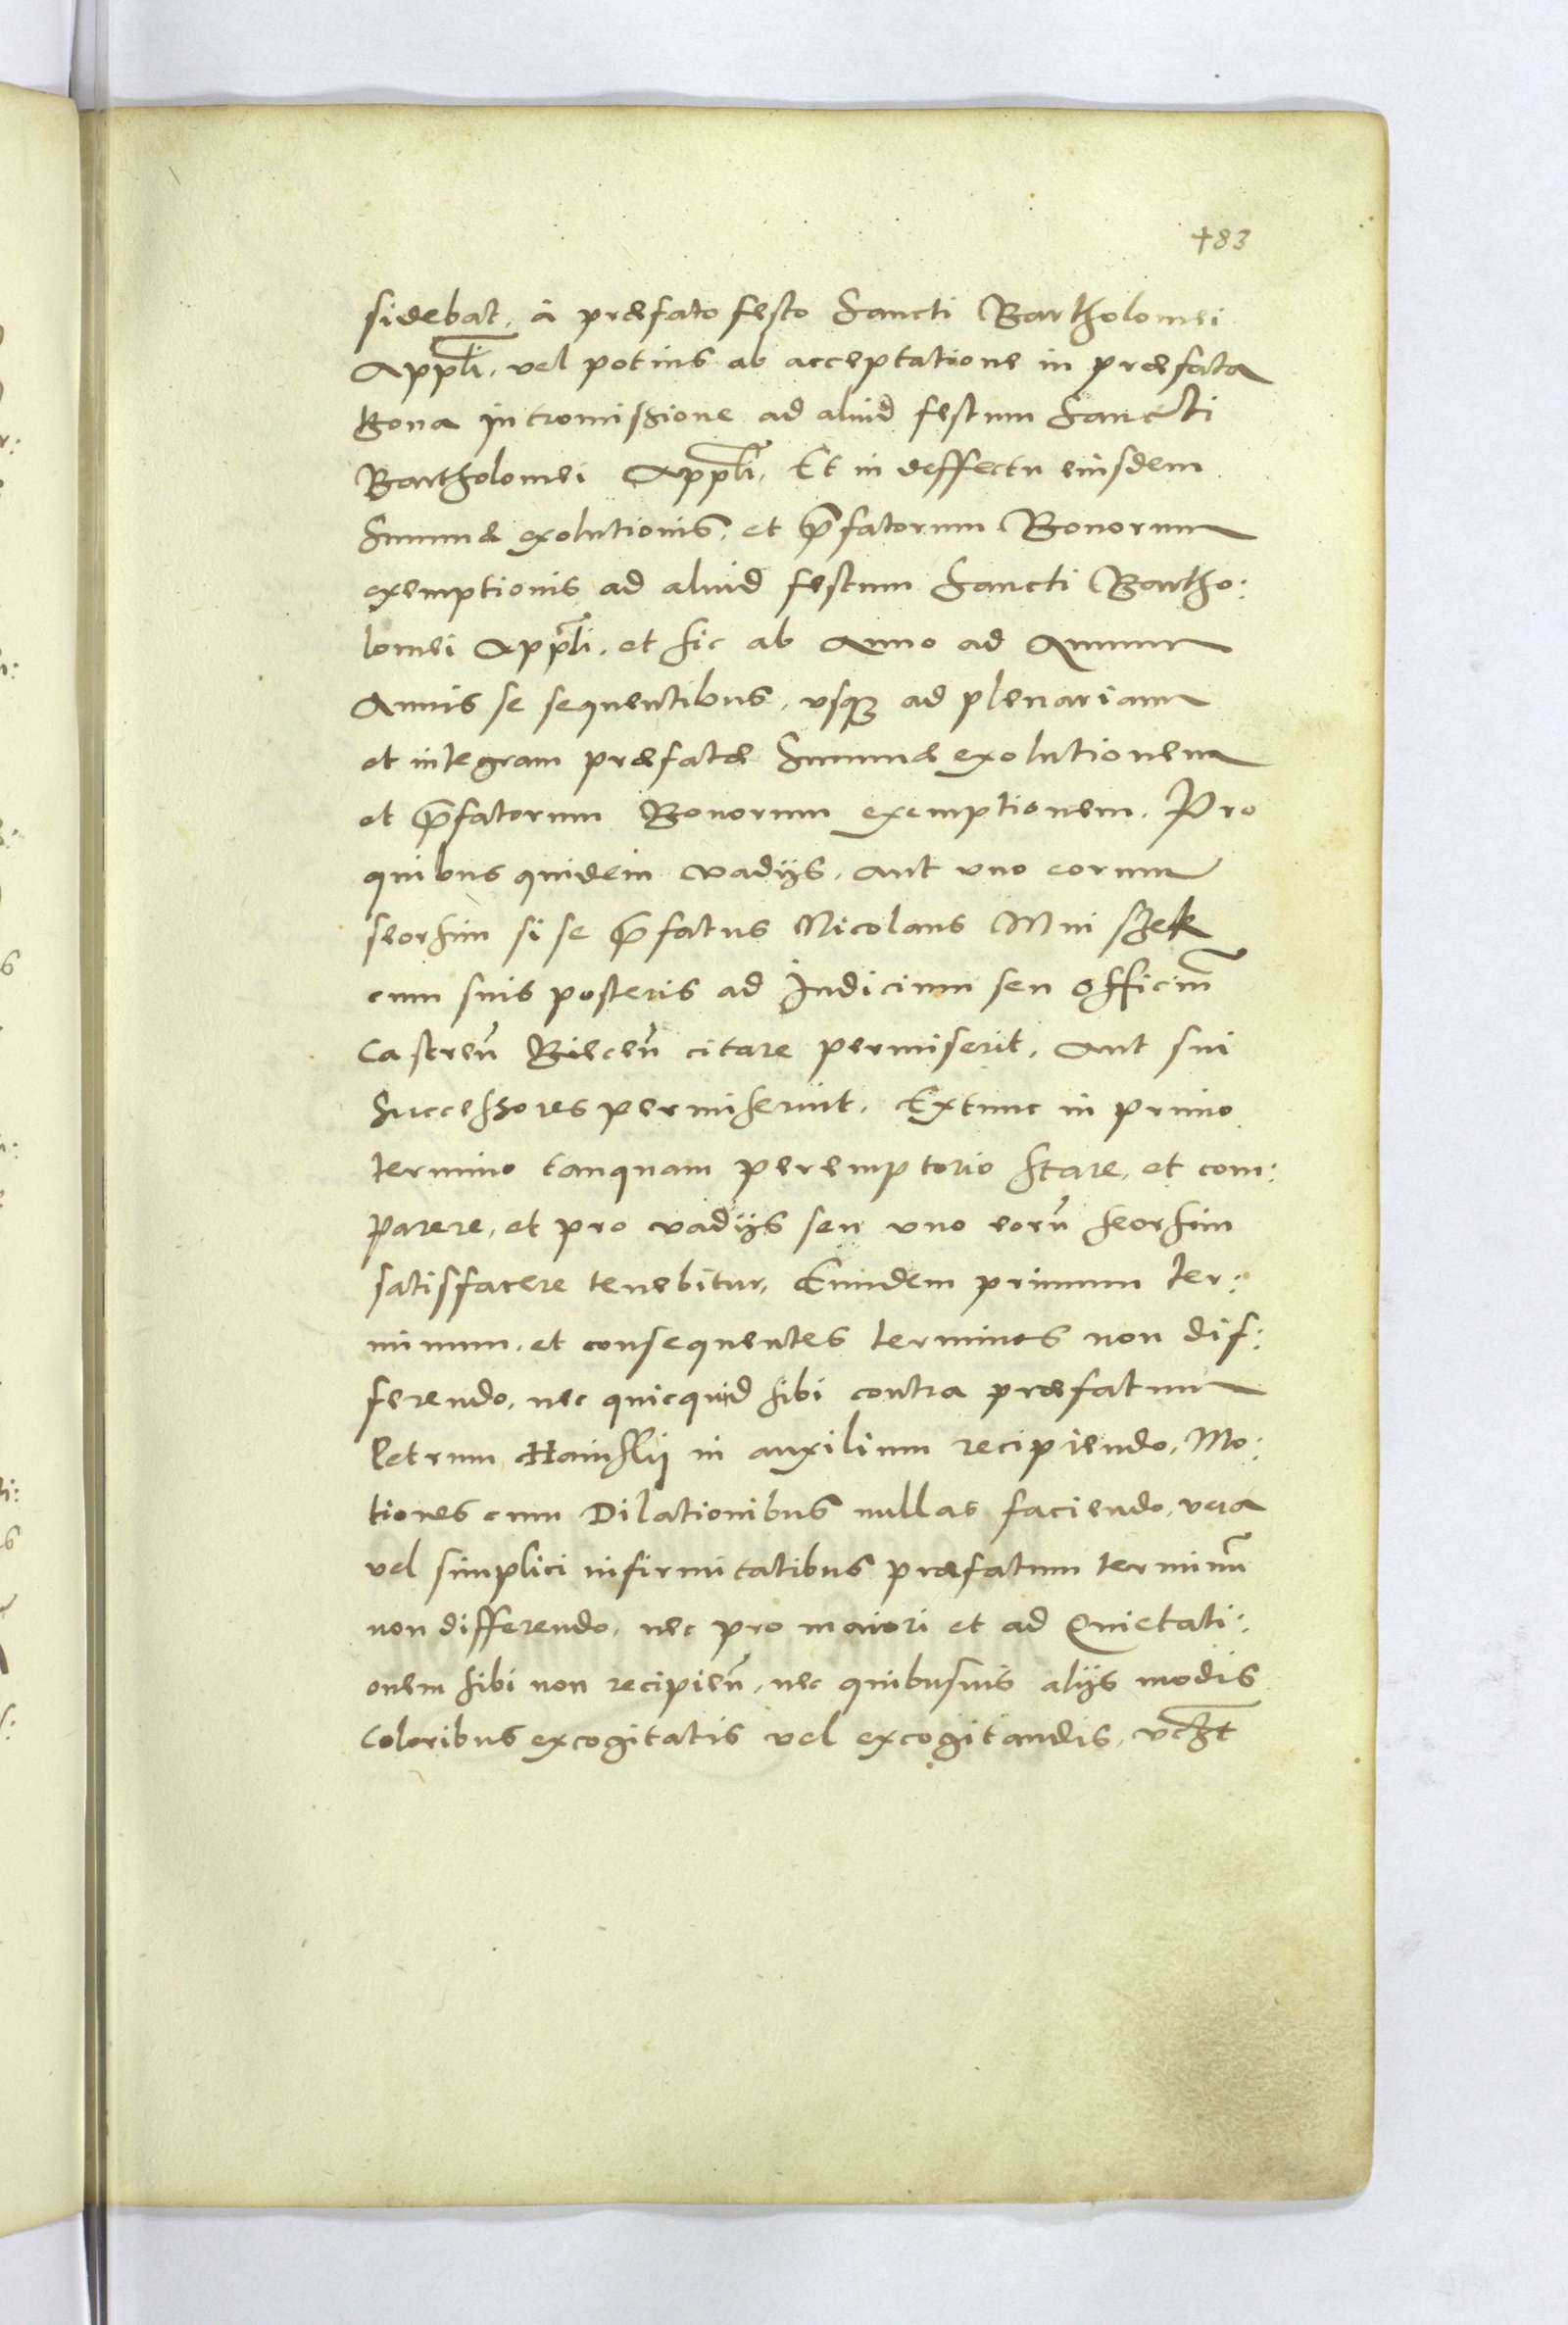 483
sidebat, à præfato festo Sancti Bartholomei
Appli, vel potius ab acceptatione in præfata
Bona intromissione ad aliud festum Sancti
Bartholomei Appli, Et in deffectu eiusdem
Summæ exolutionis, et p̄fatorum Bonorum
exemptionis ad aliud festum Sancti Bartho:
lomei Appli, et sic ab Anno ad Annum
Annis se sequentibus, vsq3 ad plenariam
et integram præfatæ Summæ exolutionem
et p̄fatorum Bonorum exemptionem. Pro
quibus quidem vadijs, aut uno eorum
seorsim si se p̄fatus Nicolaus Mniszek
cum suis posteris ad Iudicium seu officiũ
Castreñ Bieceñ citare permiserit, aut sui
Successores permiserint, Extunc in primo
termino tanquam peremptorio stare, et com:
parere, et pro vadijs seu uno eorũ seorsim
satisfacere tenebitur, Eundem primum ter:
minum, et consequentes terminos non dif:
ferendo, nec quicquid sibi contra præfatum
Petrum in auxilium recipiendo, Mo:
tiones cum Dilationibus nullas faciendo, vera
vel simplici infirmitatibus præfatum terminũ
non differendo, nec pro maiori et ad Quietati:
onem sibi non recipieñ, nec quibusuis alijs modis
Coloribus excogitatis vel excogitandis,